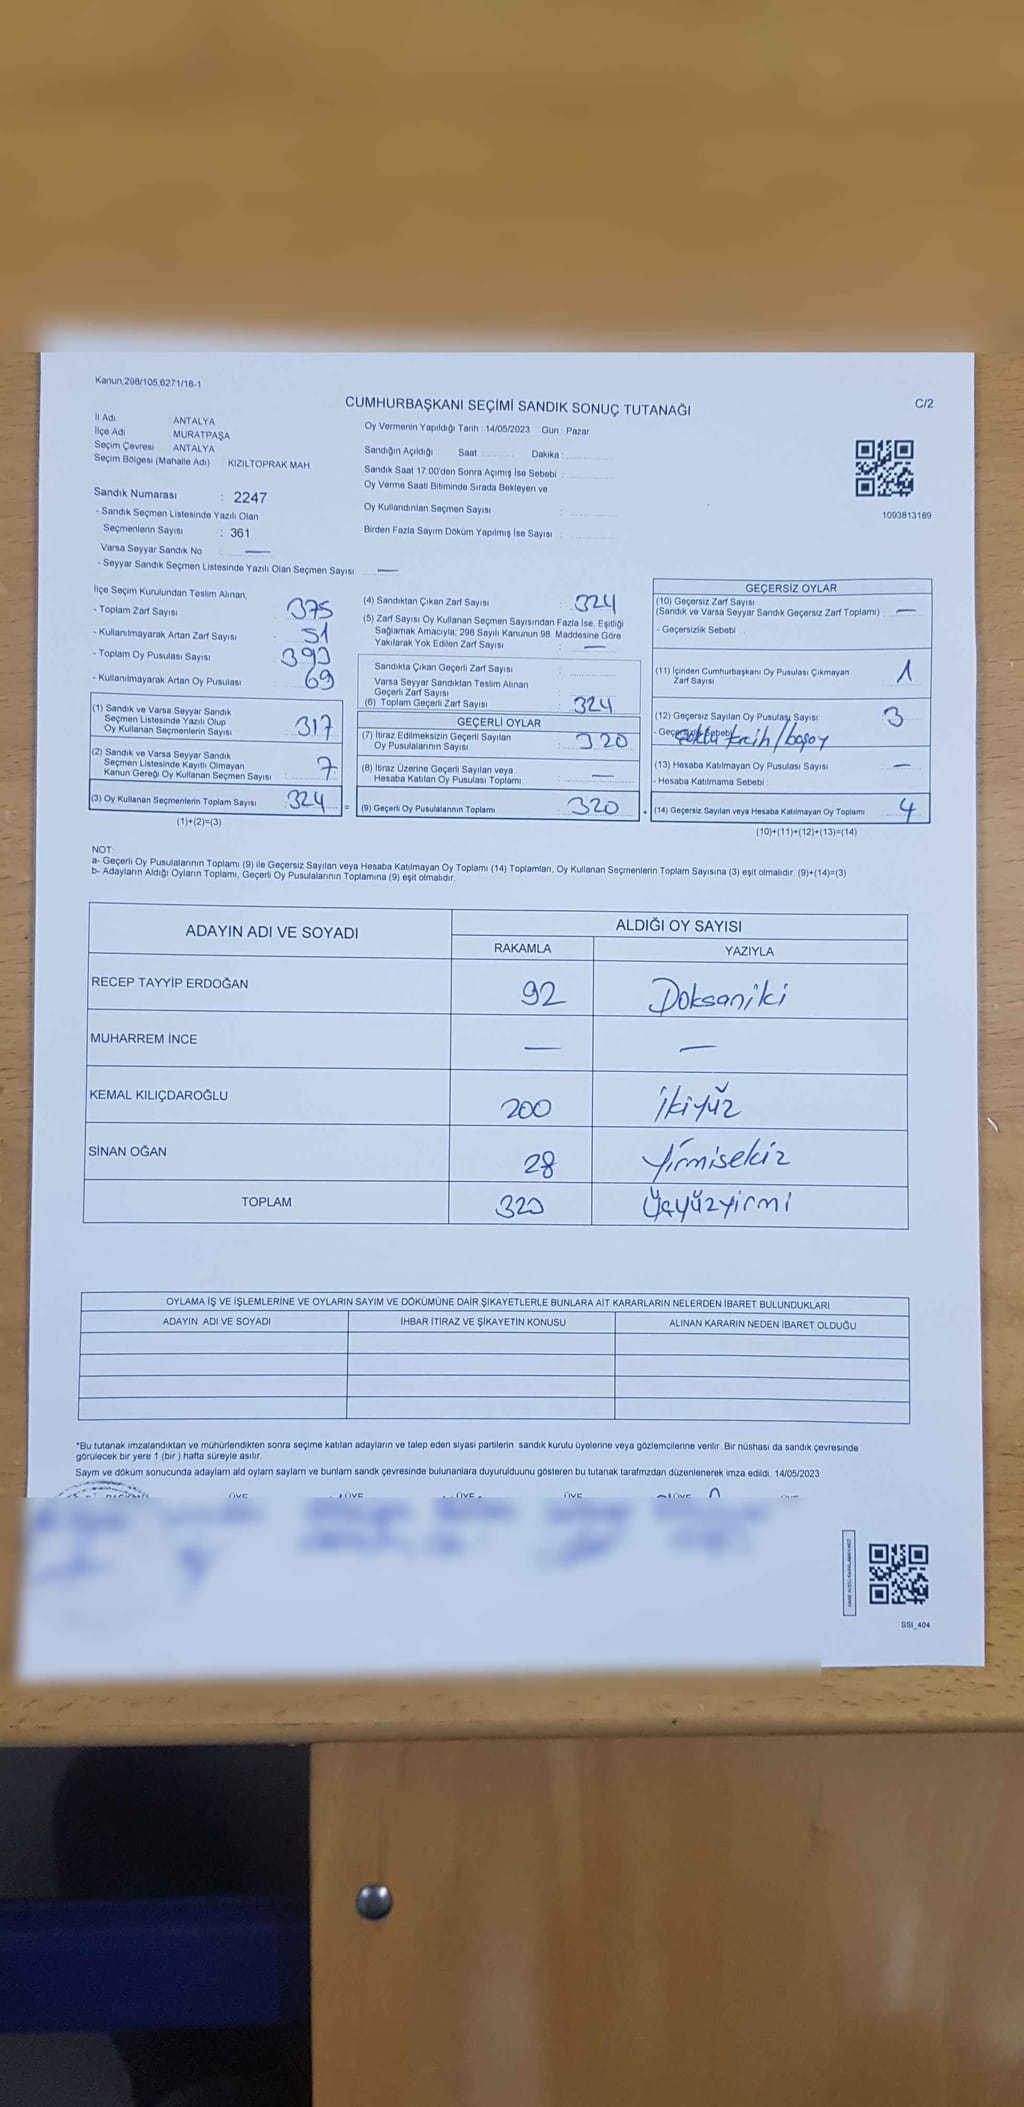 Kanun,298/105,6271/18-1
CUMHURBAŞKANI SEÇİMİ SANDIK SONUÇ TUTANAĞI
C/2
İl Adı ANTALYA
İlçe Adı MURATPAŞA
Seçim Çevresi ANTALYA
Seçim Bölgesi (Mahalle Adı) KIZILTOPRAK MAH.
Sandık Numarası : 2247
- Sandık Seçmen Listesinde Yazılı Olan
Seçmenlerin Sayısı : 361
Varsa Seyyar Sandık No —
- Seyyar Sandık Seçmen Listesinde Yazılı Olan Seçmen Sayısı: —
Oy Vermenin Yapıldığı Tarih : 14/05/2023 Gün : Pazar
Sandığın Açıldığı Saat Dakika :
Sandık Saat 17:00'den Sonra Açımış İse Sebebi :
Oy Verme Saati Bitiminde Sırada Bekleyen ve
Oy Kullandırılan Seçmen Sayısı :
Birden Fazla Sayım Döküm Yapılmış İse Sayısı :
1093813189
İlçe Seçim Kurulundan Teslim Alınan;
- Toplam Zarf Sayısı : 375
- Kullanılmayarak Artan Zarf Sayısı : 51
- Toplam Oy Pusulası Sayısı : 393
- Kullanılmayarak Artan Oy Pusulası : 69
(1) Sandık ve Varsa Seyyar Sandık
Seçmen Listesinde Yazılı Olup
Oy Kullanan Seçmenlerin Sayısı : 317
(2) Sandık ve Varsa Seyyar Sandık
Seçmen Listesinde Kayıtlı Olmayan
Kanun Gereği Oy Kullanan Seçmen Sayısı : 7
(3) Oy Kullanan Seçmenlerin Toplam Sayısı : 324
(1)+(2)=(3)
(4) Sandıktan Çıkan Zarf Sayısı : 324
(5) Zarf Sayısı Oy Kullanan Seçmen Sayısından Fazla İse, Eşitliği
Sağlamak Amacıyla; 298 Sayılı Kanunun 98. Maddesine Göre
Yakılarak Yok Edilen Zarf Sayısı : —
Sandıkta Çıkan Geçerli Zarf Sayısı :
Varsa Seyyar Sandıktan Teslim Alınan
Geçerli Zarf Sayısı :
(6) Toplam Geçerli Zarf Sayısı : 324
GEÇERLİ OYLAR
(7) İtiraz Edilmeksizin Geçerli Sayılan
Oy Pusulalarının Sayısı : 320
(8) İtiraz Üzerine Geçerli Sayılan veya
Hesaba Katılan Oy Pusulası Toplamı : —
= (9) Geçerli Oy Pusulalarının Toplamı : 320
GEÇERSİZ OYLAR
(10) Geçersiz Zarf Sayısı
(Sandık ve Varsa Seyyar Sandık Geçersiz Zarf Toplamı) : —
- Geçersizlik Sebebi
(11) İçinden Cumhurbaşkanı Oy Pusulası Çıkmayan
Zarf Sayısı 1
(12) Geçersiz Sayılan Oy Pusulası Sayısı 3
(13) Hesaba Katılmayan Oy Pusulası Sayısı —
- Hesaba Katılmama Sebebi
+ (14) Geçersiz Sayılan veya Hesaba Katılmayan Oy Toplamı : 4
(10)+(11)+(12)+(13)=(14)
NOT:
a- Geçerli Oy Pusulalarının Toplamı (9) ile Geçersiz Sayılan veya Hesaba Katılmayan Oy Toplamı (14) Toplamları, Oy Kullanan Seçmenlerin Toplam Sayısına (3) eşit olmalıdır. (9)+(14)=(3)
b- Adayların Aldığı Oyların Toplamı, Geçerli Oy Pusulalarının Toplamına (9) eşit olmalıdır.
ADAYIN ADI VE SOYADI ALDIĞI OY SAYISI
RAKAMLA YAZIYLA
RECEP TAYYİP ERDOĞAN 92 Doksaniki
MUHARREM İNCE — —
KEMAL KILIÇDAROĞLU 200 İkiyüz
SİNAN OĞAN 28 Yirmisekiz
TOPLAM 320 Üçyüzyirmi
OYLAMA İŞ VE İŞLEMLERİNE VE OYLARIN SAYIM VE DÖKÜMÜNE DAİR ŞİKAYETLERLE BUNLARA AİT KARARLARIN NELERDEN İBARET BULUNDUKLARI
ADAYIN ADI VE SOYADI İHBAR İTİRAZ VE ŞİKAYETİN KONUSU ALINAN KARARIN NEDEN İBARET OLDUĞU
*Bu tutanak imzalandıktan ve mühürlendikten sonra seçime katılan adayların ve talep eden siyasi partilerin sandık kurulu üyelerine veya gözlemcilerine verilir. Bir nüshası da sandık çevresinde
görülecek bir yere 1 (bir ) hafta süreyle asılır.
Sayım ve döküm sonucunda adayların ald oyların sayların ve bunların sandk çevresinde bulunanlara duyurulduunu gösteren bu tutanak tarafmzdan düzenlenerek imza edildi. 14/05/2023
ÜYE ÜYE ÜYE ÜYE ÜYE
SSI_404